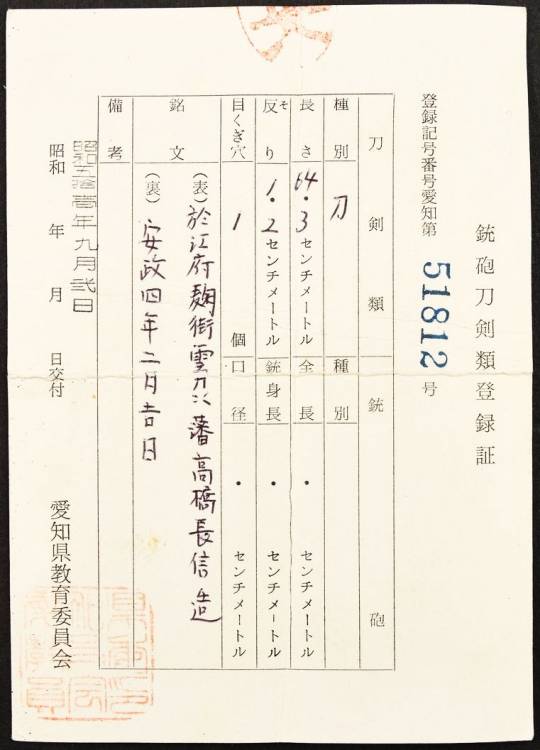 銃砲刀剣類登録証
登録記号番号愛知第 51812 号
刀剣類 銃砲
種別 刀 種別
長さ 64.3センチメートル 全長 ・ センチメートル
反り そ 1.2センチメートル 銃身長 ・ センチメートル
目くぎ穴 1 個 口径 ・ センチメートル
銘文 (表) 於江府麹街雲州藩高橋長信造
(裏) 安政四年二月吉日
備考
昭和五拾壱年九月弐日
昭和 年 月 日交付
愛知県教育委員会